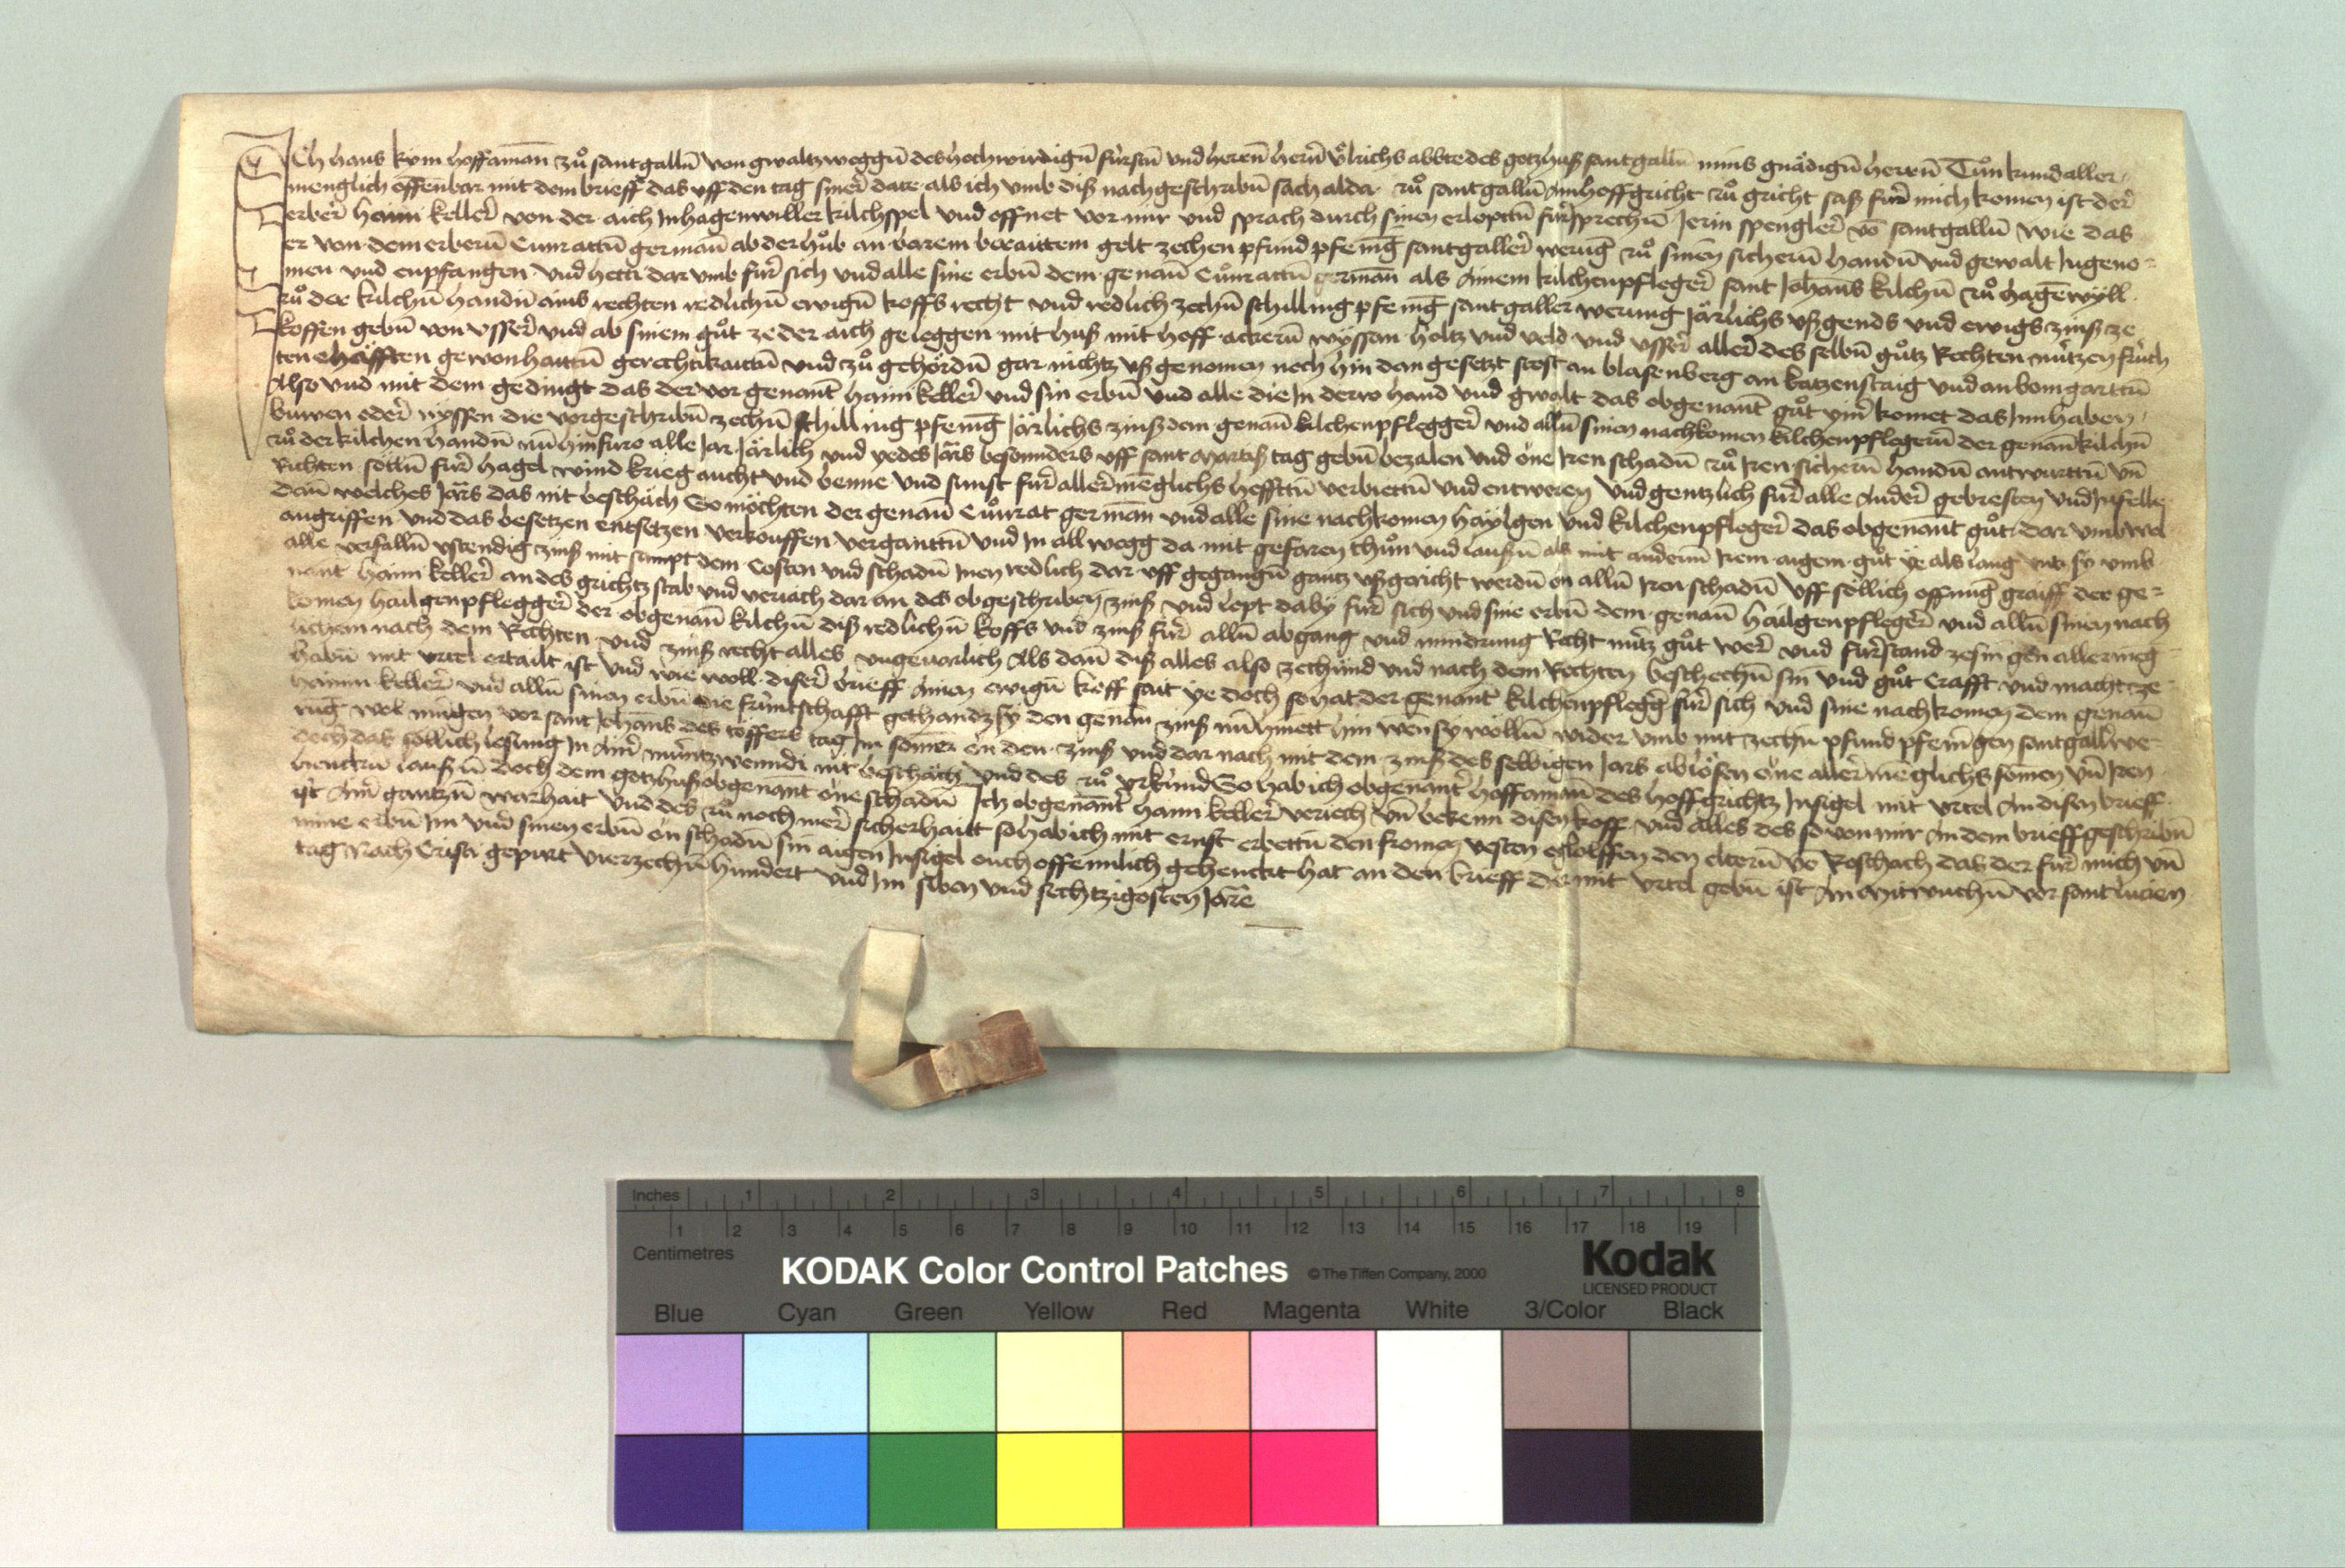 Ich hans kym hoffaman̄ zů santgallñ von gwaltz weggñ des hochwirdigñ fürstñ und herrñ herñ ůlrichs abbte des gotzhuß santgallñ mins gnädigñ herrñ Tůn kund aller-
menglich offenbar mit dem brieff das uff den tag siner date als ich umb diß nachgeschribñ sach alda zů santgallñ Am hoffgricht zů gricht saß für mich komen ist der
erber haini keller von der aich In hagenwiller kilchspel und offnet vor mir und sprach durch sinen erlopttñ fürsprechñ Jerin spengler vō santgallñ wie das
er von dem erberñ Cunrattñ german̄ ab der hůb an barem beraittem gelt zechen pfund pfenig santgaller werung zů sinen sicherñ handñ und gewalt Ingeno-
men und enpfangen und hetti dar umb für sich und alle sine erbñ dem genan̄ Cůnrattñ german̄ als Ainem kilchenpfleger sant Johans kilchñ zů hagēwyll
zů der kilchñ handñ ains rechten redlichñ ewigñ koffs recht und redlich zechñ schilling pfenig santgaller werung Järlichs ußgends und ewigs zinß ze
koffen gebñ von usser und ab sinem gůt ze der aich geleggen mit huß mit hoff ackerñ wyssan holtz und veld und usser aller des selbñ gůtz Rechten nützen früch
ten ehäfften gewonhaittñ gerechtikaittñ und zů gehördñ gar nichtz ußgenomen noch hin dan gesetzt stost an blasenberg an katzenstaig und an bomgarttñ
Also und mit dem gedingt das der vor genant haini keller und sin erbñ und alle die In derro hand und gwalt das obgenant gůt ymer komet das Innhaben
buwen oder nyssen die vorgeschribñ zechñ schilling pfenig Järlichs zinß dem genan̄ kilchenpflegger und allñ sinen nachkomen kilchenpflegerñ der genan̄ kilchñ
zů der kilchen handñ nu hinfüro alle Jar Järlich und yedes Jars besonnders uff sant Martis tag gebñ bezalen und one Iren schadñ zů Iren sicherñ handñ antwurttñ vn̄
Richten söllñ für hagel wind krieg aucht und benne und sunst für aller menglichs hefftñ verbiettñ und entweren und gentzlich für alle Ander gebresten und Infelle
dan̄ welches Jars das nit beschäch So möchten der genan̄ Cůnrat german̄ und alle sine nachkomen haylgen und kilchenpfleger das obgenant gůt dar umb wol
angriffen und das besetzen entsetzen verkouffen verganttñ und In all wegg da mit gefaren thůn und laussñ als mit anderm Irem aigem gůt ye als lang untz sy umb
alle verfallñ ustendig zinß mit sampt dem Costen und schadñ Inen redlich dar uff gegangñ gantz ußgericht werdñ on allñ Iren schadñ Uff söllich offnung graiff der ge-
nant haini keller an des grichtz stab und veriach dar an des obgeschriben zinß und lopt daby für sich und sine erbñ dem genan̄ hailgenpfleger und allñ sinen nach
komen hailgenpflegger der obgenan̄ kilchñ diß redlichñ koffs und zinß für allñ abgang und mindrung Recht nütz gůt wer und fürstand ze sin gen allermeg-
lichem nach dem Rechten und zinß recht alles ungeuarlich Als dan̄ diß alles also zechund und nach dem Rechten beschechñ sin und gůt Crafft und macht ze
habñ mit urtel ertailt ist und wie woll diser brieff Ainen ewigñ koff sait ye doch so hat der genant kilchenpfleger für sich und sine nachkomen dem genan̄
hainin keller und allñ sinen erbñ die früntschafft gethan dz sy den genan̄ zinß nu hinett hin wen sy wöllñ wider umb mit zechñ pfund pfenigen santgall we-
rug wol mugen vor sant Johans des töffers tag Im somer on den zinß und dar nach mit dem zinß des selbigen Jars ablösen one aller meglichs somen vn̄ Iren
doch das söllich losung In Ainer müntz wenndi nit beschäch und des zů urkund So hab ich obgenanter hoffaman̄ des hoffgrichtz Insigel mit urtel An disen brieff
henckñ laussñ doch dem gotzhuß obgenant one schadñ Ich obgenanter hann keller veriech vn̄ bekenn disen koff und alles des so von mir An dem brieff geschribñ
ist Ainer gantzñ warhait und des zů noch mer sicherhaitt so hab ich mit ernst erbettñ den fromen vesten eglolffen den elterñ vō Roschach das der für mich vn̄
mine erbñ Im und sinen erbñ on schadñ sin aigen Insigel ouch offennlich gehenckt hat an den brieff der mit urtel gebñ ist An Mitwuchñ vor sant lucien
tag Nach Cristi gepurt vierzechñ hundert und Im siben und sechtzigosten Jare
Inches 1 2 3 4 5 6 7 8
1 2 3 4 5 6 7 8 9 10 11 12 13 14 15 16 17 18 19
Centimetres
KODAK Color Control Patches © The Tiffen Company, 2000 Kodak
LICENSED PRODUCT
Blue Cyan Green Yellow Red Magenta White 3/Color Black